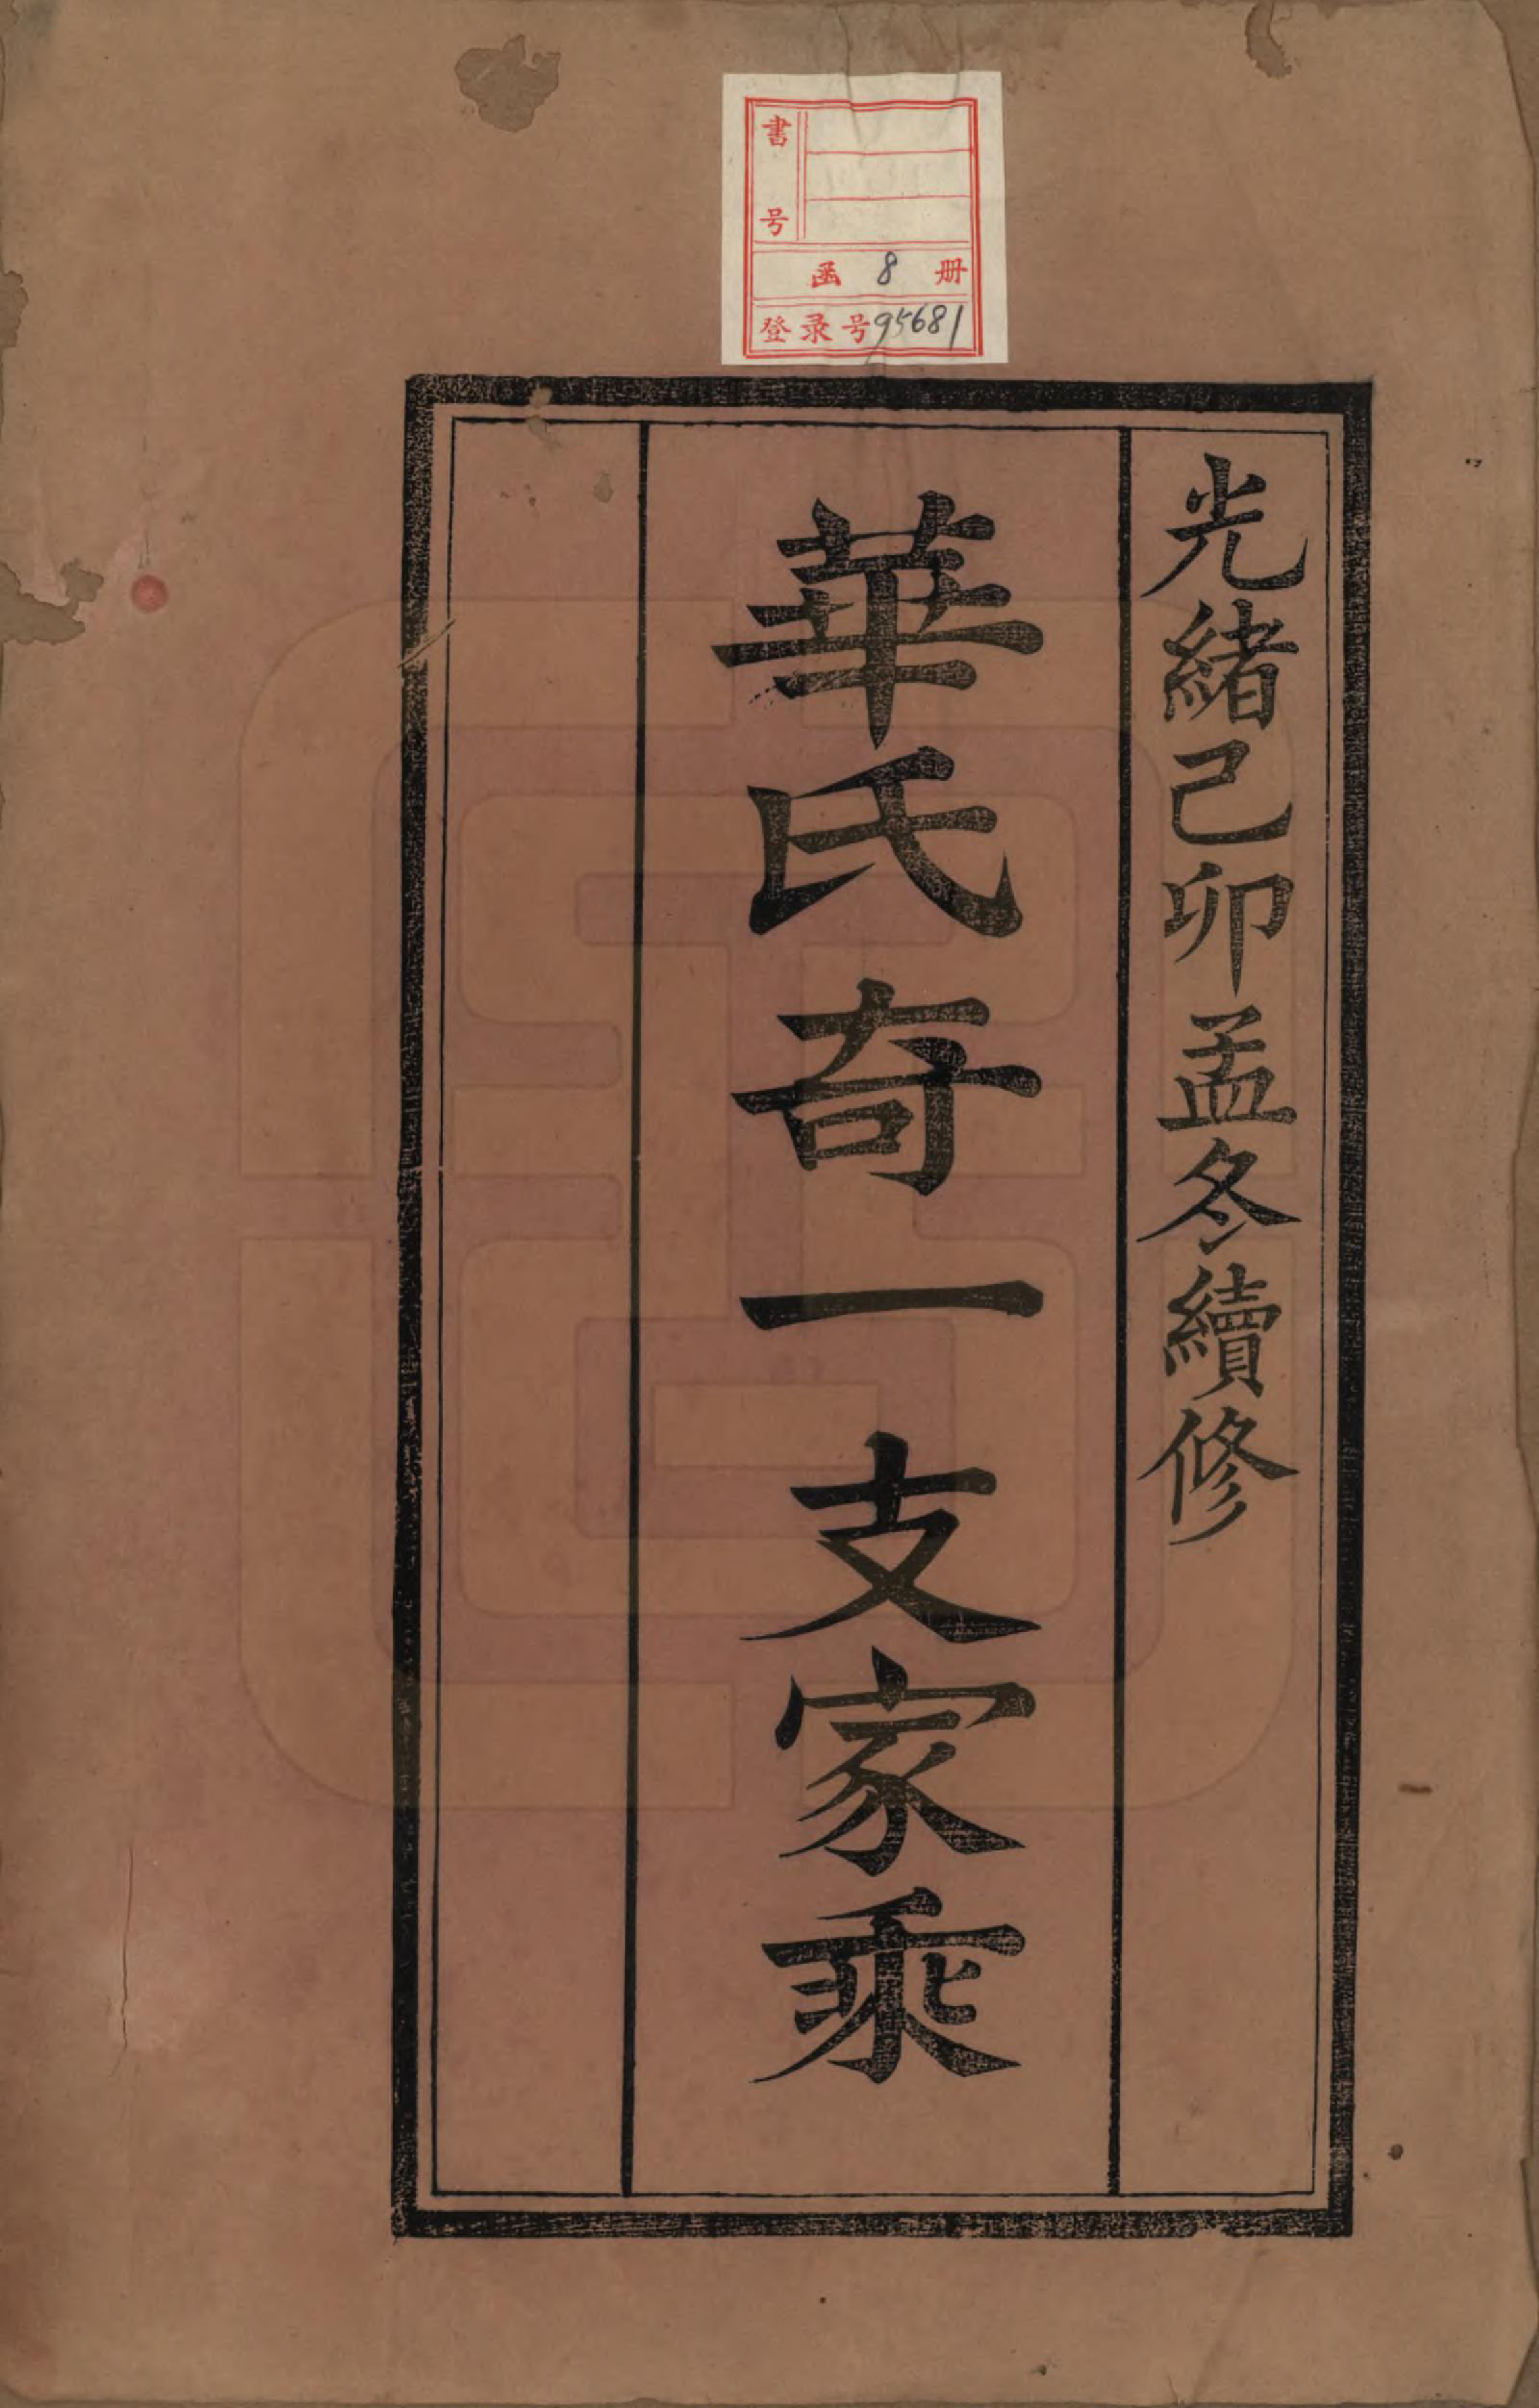 書号
函 8 册
登录号95681
光緒己卯孟冬續修
華氏奇一支家乘